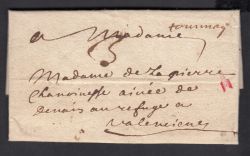 tournay
a Madame
3
Madame de la pierre
Chanoinesse ainée de
denain au refuge a
valencienne